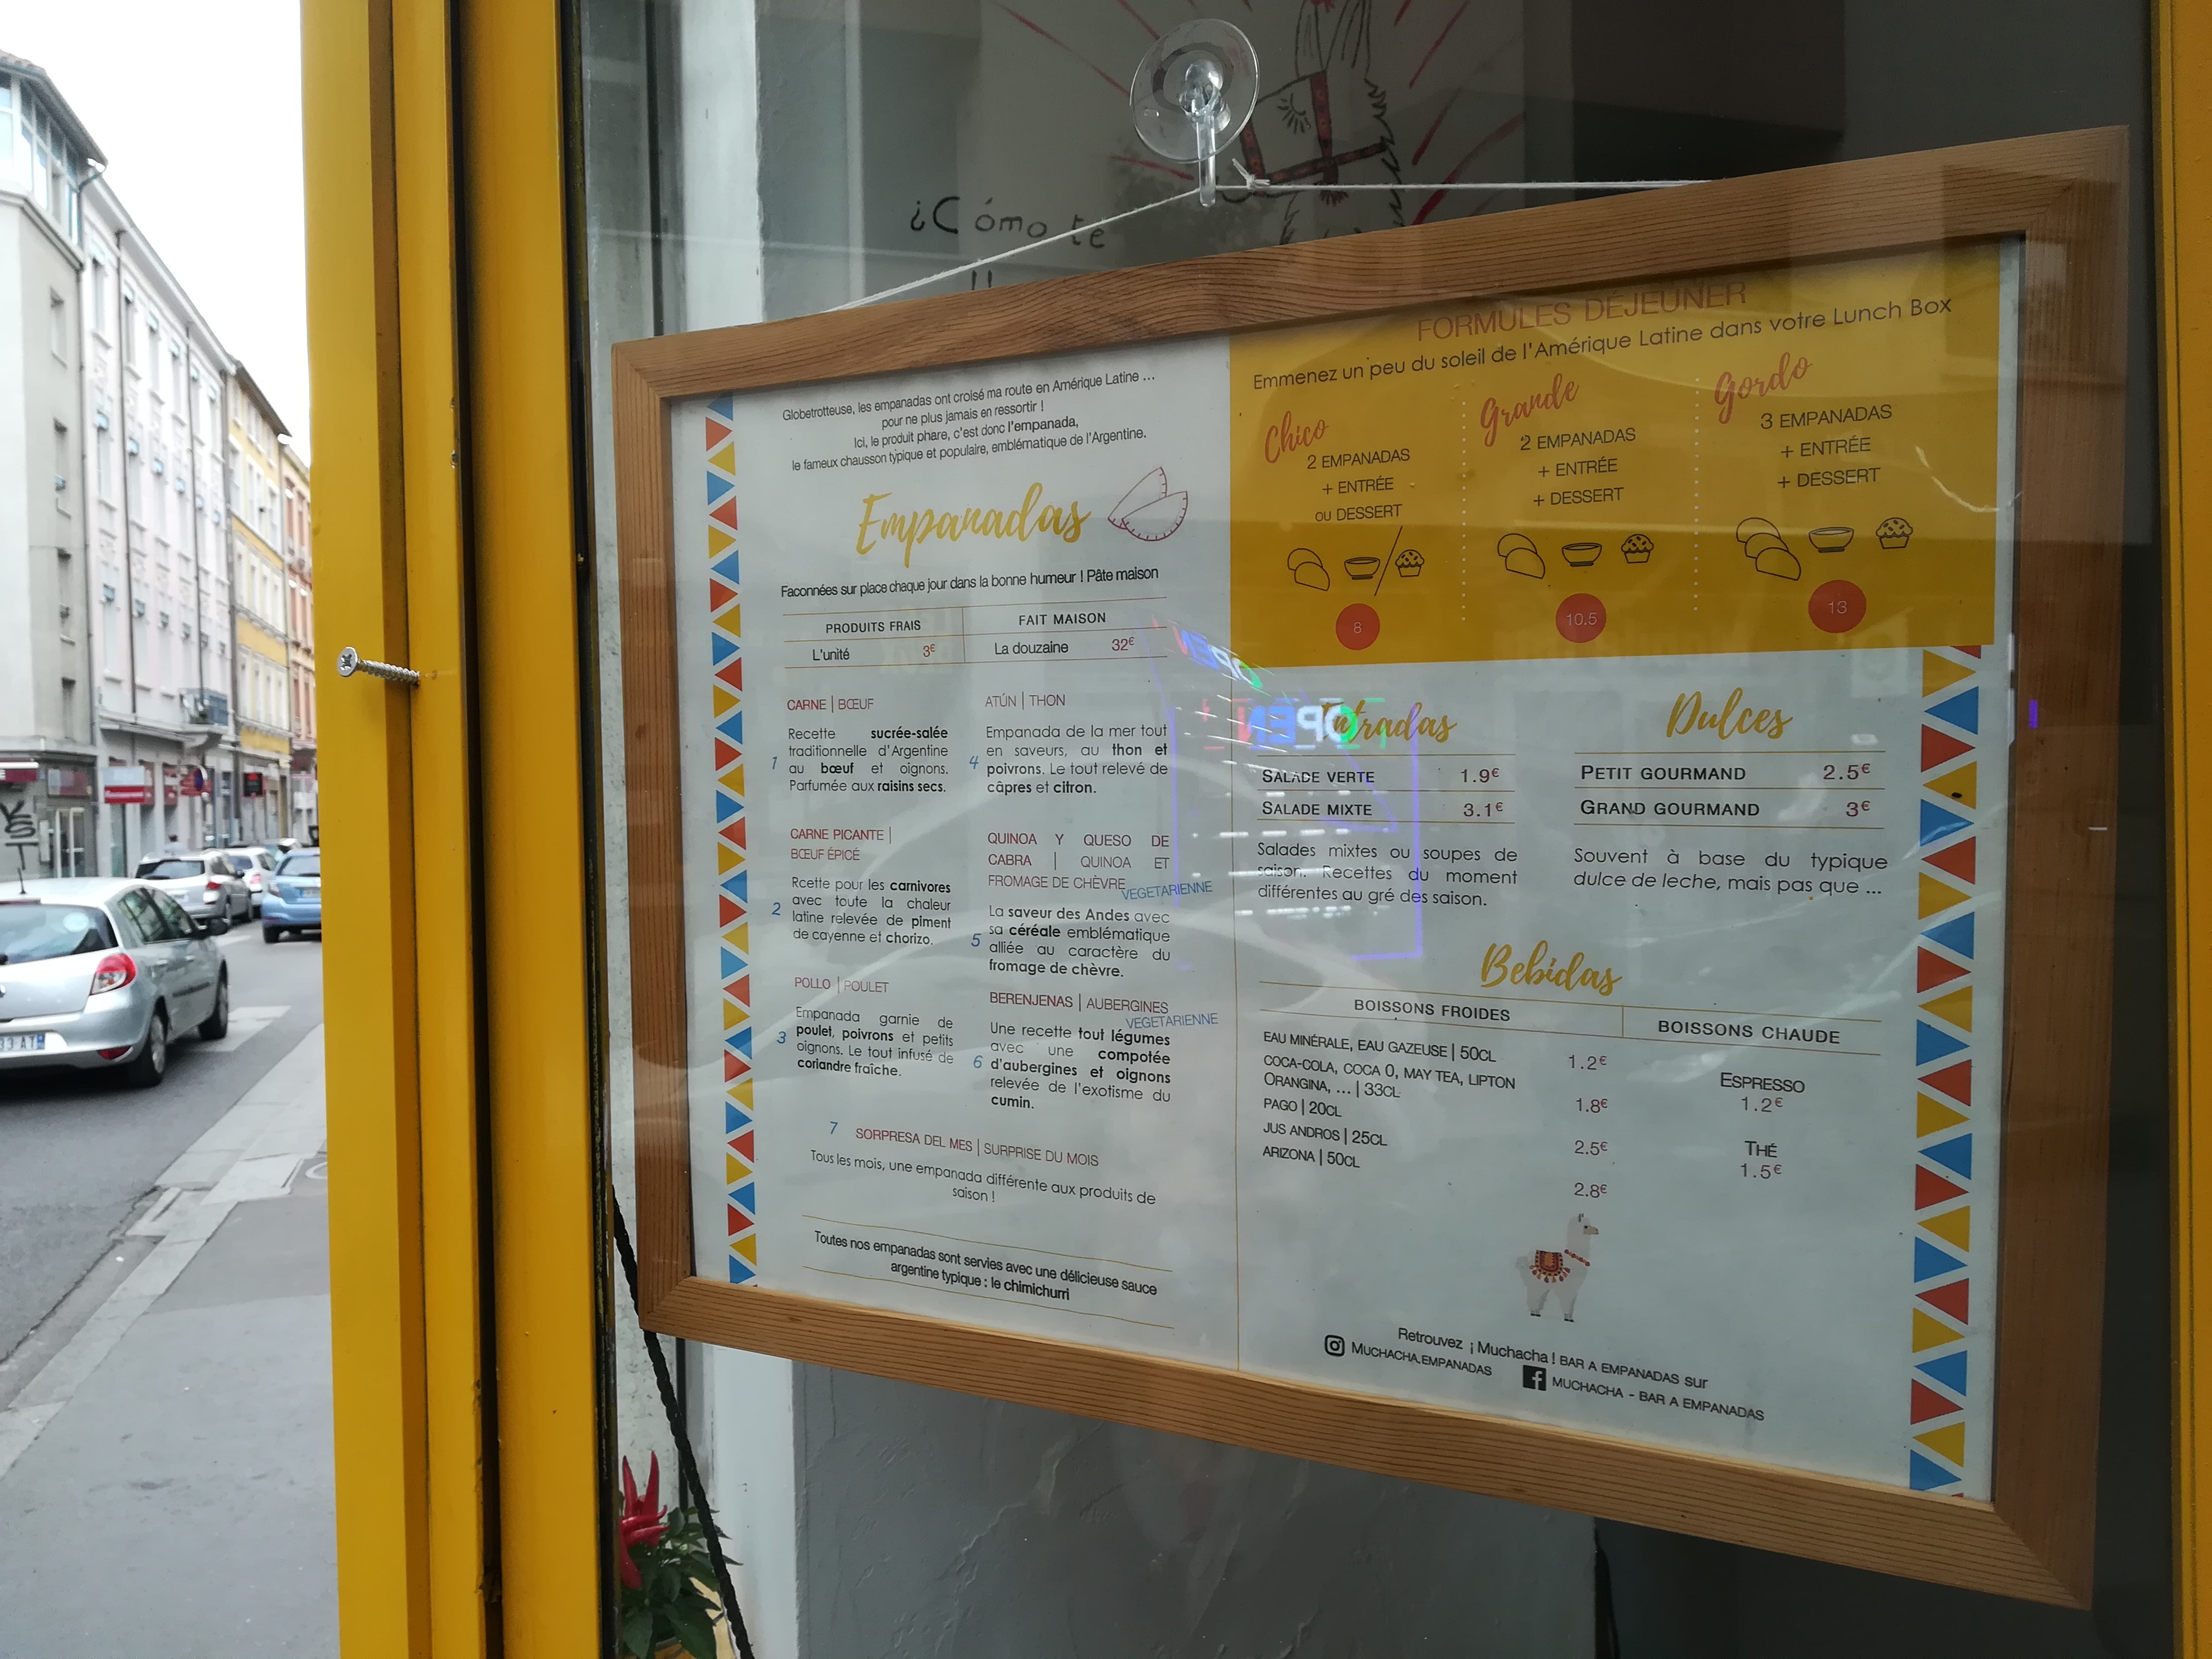 ¿Cómo te
Globetrotteuse, les empanadas ont croisé ma route en Amérique Latine ...
pour ne plus jamais en ressortir !
Ici, le produit phare, c'est donc l'empanada,
le fameux chausson typique et populaire, emblématique de l'Argentine.
Empanadas
Faconnées sur place chaque jour dans la bonne humeur ! Pâte maison
PRODUITS FRAIS FAIT MAISON
L'unité 3€ La douzaine 32€
CARNE | BŒUF
Recette sucrée-salée
traditionnelle d'Argentine
1 au bœuf et oignons.
Parfumée aux raisins secs.
CARNE PICANTE |
BŒUF ÉPICÉ
Rcette pour les carnivores
avec toute la chaleur
2 latine relevée de piment
de cayenne et chorizo.
POLLO | POULET
Empanada garnie de
3 poulet, poivrons et petits
oignons. Le tout infusé de
coriandre fraîche.
ATÚN | THON
Empanada de la mer tout
en saveurs, au thon et
4 poivrons. Le tout relevé de
câpres et citron.
QUINOA Y QUESO DE
CABRA | QUINOA ET
FROMAGE DE CHÈVRE
VEGETARIENNE
La saveur des Andes avec
sa céréale emblématique
5 alliée au caractère du
fromage de chèvre.
BERENJENAS | AUBERGINES
VEGETARIENNE
Une recette tout légumes
avec une compotée
6 d'aubergines et oignons
relevée de l'exotisme du
cumin.
7 SORPRESA DEL MES | SURPRISE DU MOIS
Tous les mois, une empanada différente aux produits de
saison !
Toutes nos empanadas sont servies avec une délicieuse sauce
argentine typique : le chimichurri
FORMULES DÉJEUNER
Emmenez un peu du soleil de l'Amérique Latine dans votre Lunch Box
Chico
2 EMPANADAS
+ ENTRÉE
OU DESSERT
8
Grande
2 EMPANADAS
+ ENTRÉE
+ DESSERT
10.5
Gordo
3 EMPANADAS
+ ENTRÉE
+ DESSERT
13
Entradas
SALADE VERTE 1.9€
SALADE MIXTE 3.1€
Salades mixtes ou soupes de
saison. Recettes du moment
différentes au gré des saison.
Dulces
PETIT GOURMAND 2.5€
GRAND GOURMAND 3€
Souvent à base du typique
dulce de leche, mais pas que ...
Bebidas
BOISSONS FROIDES
EAU MINÉRALE, EAU GAZEUSE | 50CL 1.2€
COCA-COLA, COCA 0, MAY TEA, LIPTON
ORANGINA, ... | 33CL 1.8€
PAGO | 20CL
JUS ANDROS | 25CL 2.5€
ARIZONA | 50CL 2.8€
BOISSONS CHAUDE
ESPRESSO
1.2€
THÉ
1.5€
Retrouvez ¡ Muchacha ! BAR A EMPANADAS sur
MUCHACHA.EMPANADAS MUCHACHA - BAR A EMPANADAS
OPEN